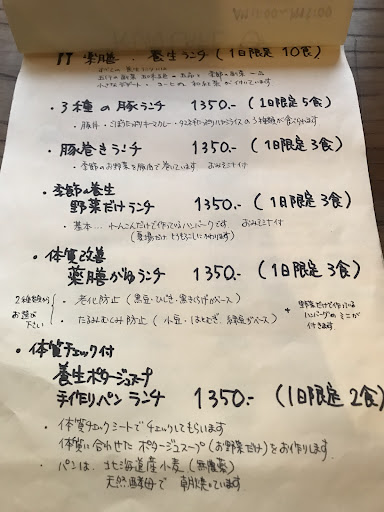 薬膳・養生ランチ (1日限定10食)
・3種の豚ランチ 1350.- (1日限定5食)
・豚巻きランチ 1350.- (1日限定3食)
・季節のお野菜を豚肉で巻いています おみそ汁付
・季節の養生
野菜だけランチ 1350.- (1日限定3食)
・基本…れんこんだけで作っているハンバーグです おみそ汁付
・体質改善
薬膳がゆランチ 1350.- (1日限定3食)
2種類から
お選び
下さい
・老化防止 (黒豆・ひじき・黒きくらげがベース)
・たるみむくみ防止 (小豆・はとむぎ・緑豆がベース)
+
野菜だけで作っている
ハンバーグのミニが
付きます
・体質チェック付
養生ポタージュスープ
手作りパンランチ 1350.- (1日限定2食)
・体質チェックシートでチェックしてもらいます
体質に合わせたポタージュスープ(お野菜だけ)をお作りします
・パンは、北海道産小麦(無農薬)
天然酵母で朝焼いています